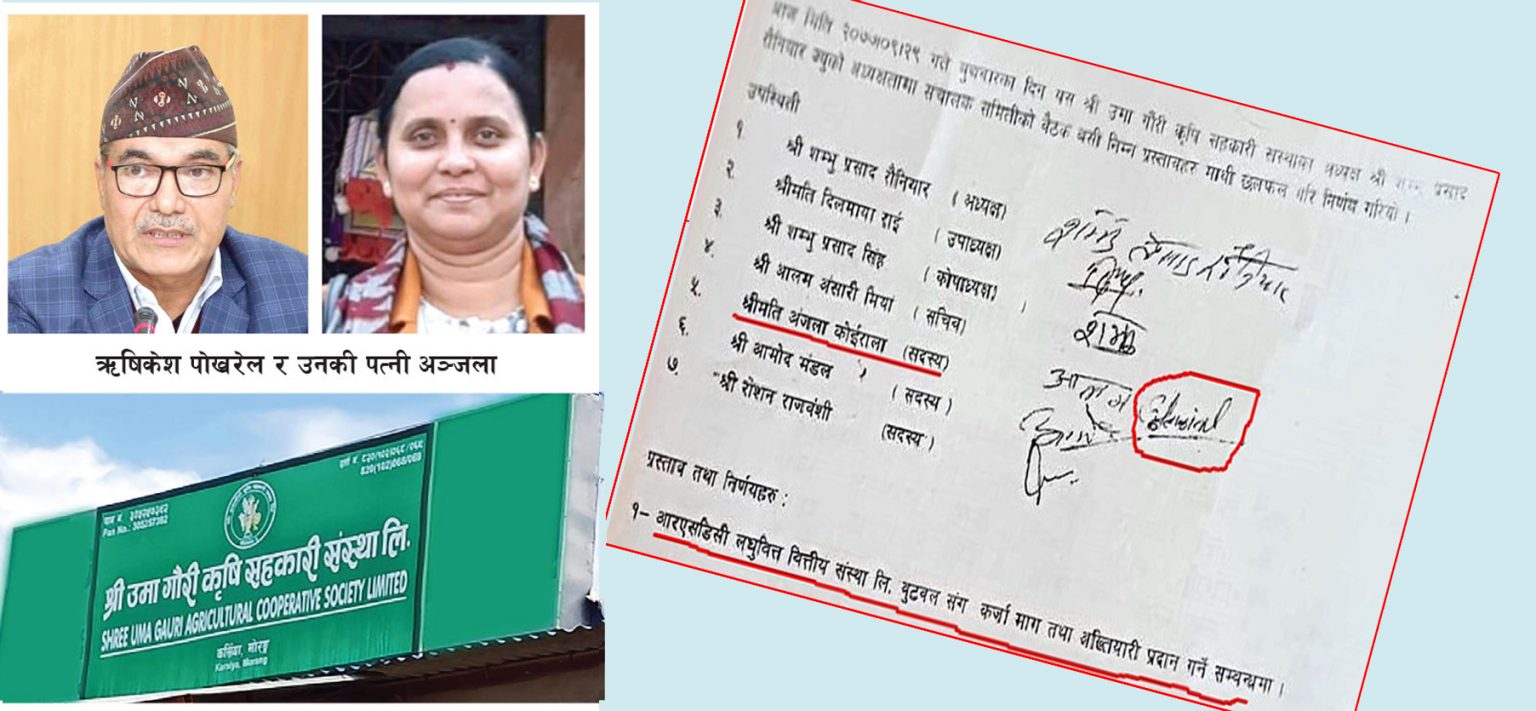 ऋषिकेश पोखरेल र उनकी पत्नी अञ्जला
दर्ता नं. ८२०(१०२)०६८/०६९
820(102)068/069
पान नं. ३०५२५७३८२
Pan No.: 305257382
श्री उमा गौरी कृषि सहकारी संस्था लि.
SHREE UMA GAURI AGRICULTURAL COOPERATIVE SOCIETY LIMITED
कर्सिया, मोरङ
Karsiya, Morang
आज मिति २०७७।०९।२९ गते बुधबारका दिन यस श्री उमा गौरी कृषि सहकारी संस्थाका अध्यक्ष श्री शम्भु प्रसाद
रौनियार ज्युको अध्यक्षतामा संचालक समितीको बैठक बसी निम्न प्रस्तावहर माथी छलफल गरि निर्णय गरियो ।
उपस्थिती
१. श्री शम्भु प्रसाद रौनियार ( अध्यक्ष) शम्भु प्रसाद रौनियार
२. श्रीमति दिलमाया राई ( उपाध्यक्ष)
३. श्री शम्भु प्रसाद सिंह ( कोषाध्यक्ष) शम्भु
४. श्री आलम अंसारी मियां ( सचिव) आलम
५. श्रीमति अंजला कोईराला (सदस्य)
६. श्री आमोद मंडल ( सदस्य )
७. श्री रोशन राजवंशी (सदस्य )
प्रस्ताव तथा निर्णयहरु :
१– आरएसडिसी लघुवित्त वित्तीय संस्था लि. बुटवल संग कर्जा माग तथा अख्तियारी प्रदान गर्ने सम्बन्धमा ।